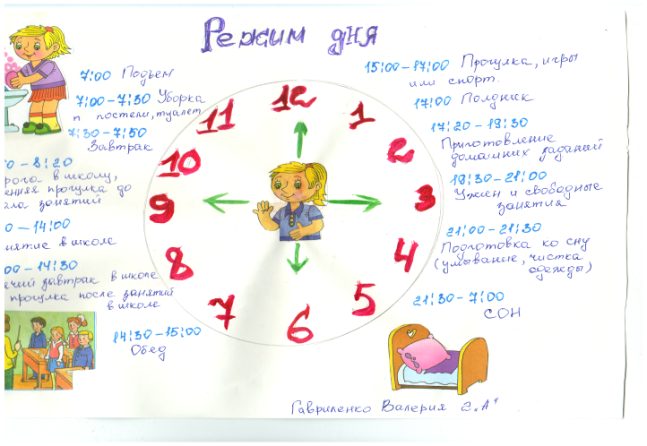 Режим дня
7:00 Подъем
7:00–7:30 Уборка
постели, туалет
7:30–7:50
Завтрак
0–8:20
рога в школу,
енняя прогулка до
ала занятий
0–14:00
нятие в школе
00–14:30
ячий завтрак в школе
прогулка после занятий
в школе
14:30–15:00
Обед
12
1
2
3
4
5
6
7
8
9
10
11
15:00–17:00 Прогулка, игры
или спорт.
17:00 Полдник
17:20–19:30
Приготовление
домашних заданий
19:30–21:00
Ужин и свободные
занятия
21:00–21:30
Подготовка ко сну
(умывание, чистка
одежды)
21:30–7:00
СОН
Гавриленко Валерия 2"А"